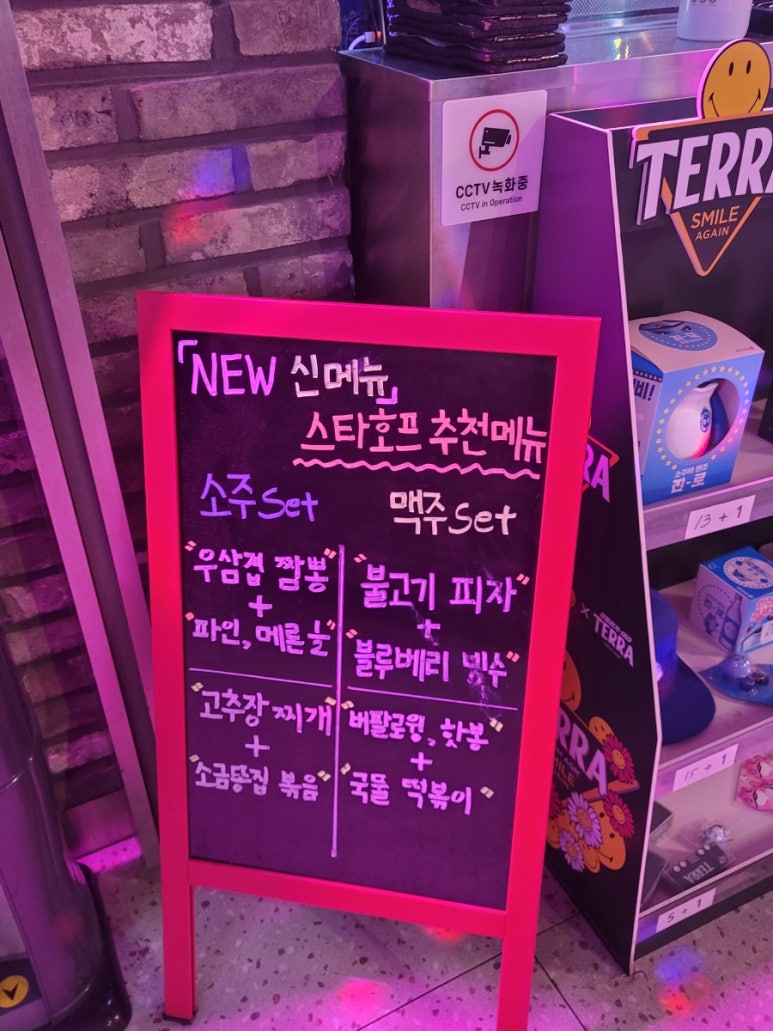 CCTV 녹화중
CCTV in Operation
TERRA
SMILE
AGAIN
「NEW 신메뉴」
스타호프 추천메뉴
소주 Set
"우삼겹 짬뽕"
+
"파인, 메론
"고추장 찌개"
+
"소금똥집 볶음"
맥주 Set
"불고기 피자"
+
"블루베리 빙수"
"버팔로윙, 핫봉"
+
"국물 떡볶이"
소주의 원조
진-로
13 + 1
TERRA
15 + 1
TERRA
5 + 1